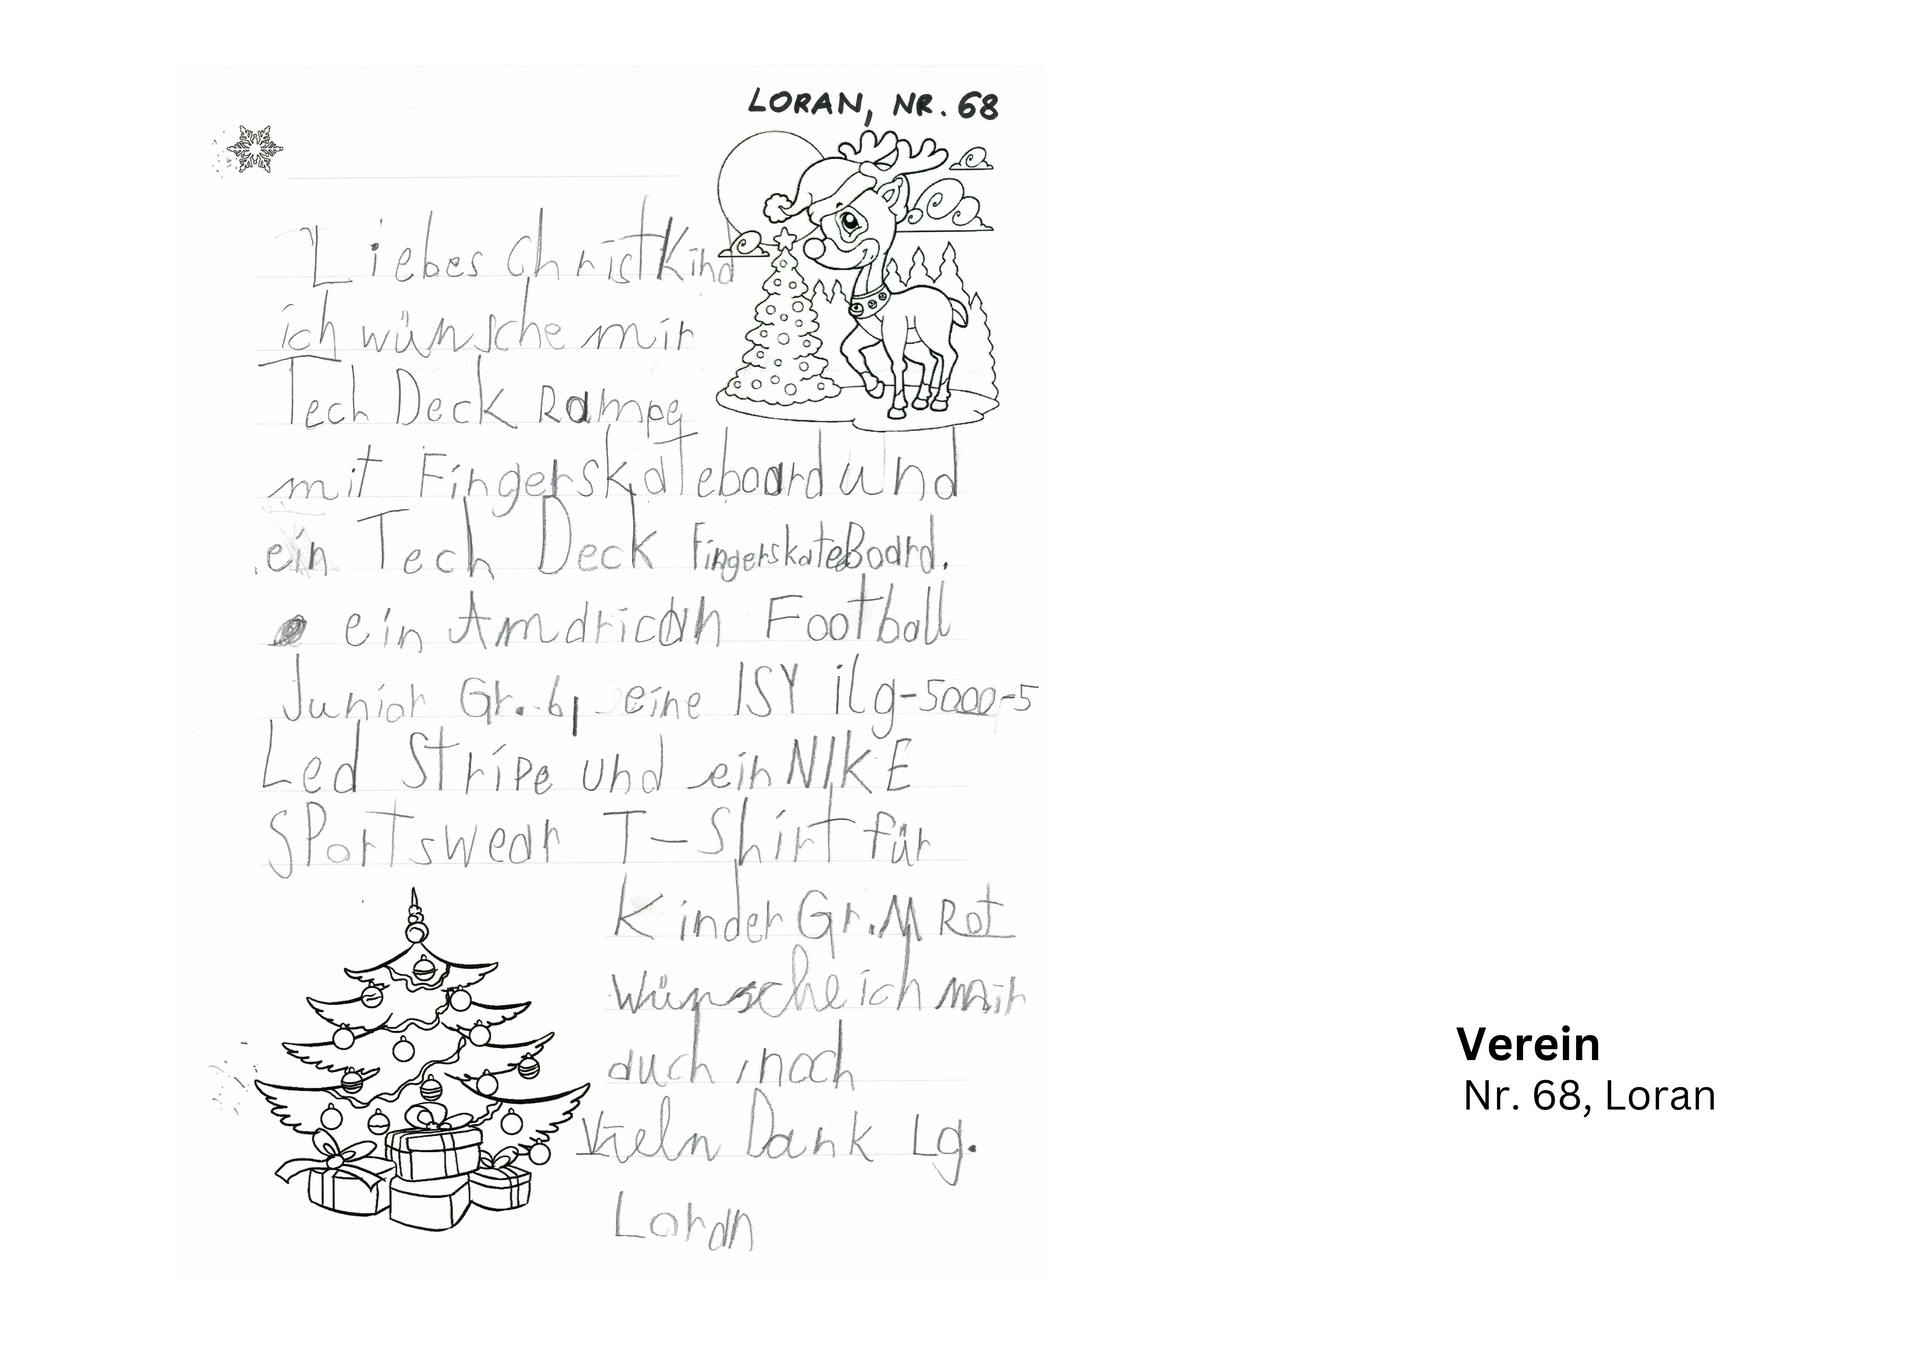 LORAN, NR. 68
Liebes Christkind
ich wünsche mir
Tech Deck Rampe
mit Fingerskateboard und
ein Tech Deck FingerskateBoard.
ein Amarican Football
Junior Gr. 6, eine ISY ilg-5000-5
Led Stripe und ein NIKE
SPortswear T-Shirt für
Kinder Gr. M Rot
wünsche ich mir
auch noch
Vieln Dank Lg.
Loran
Verein
Nr. 68, Loran